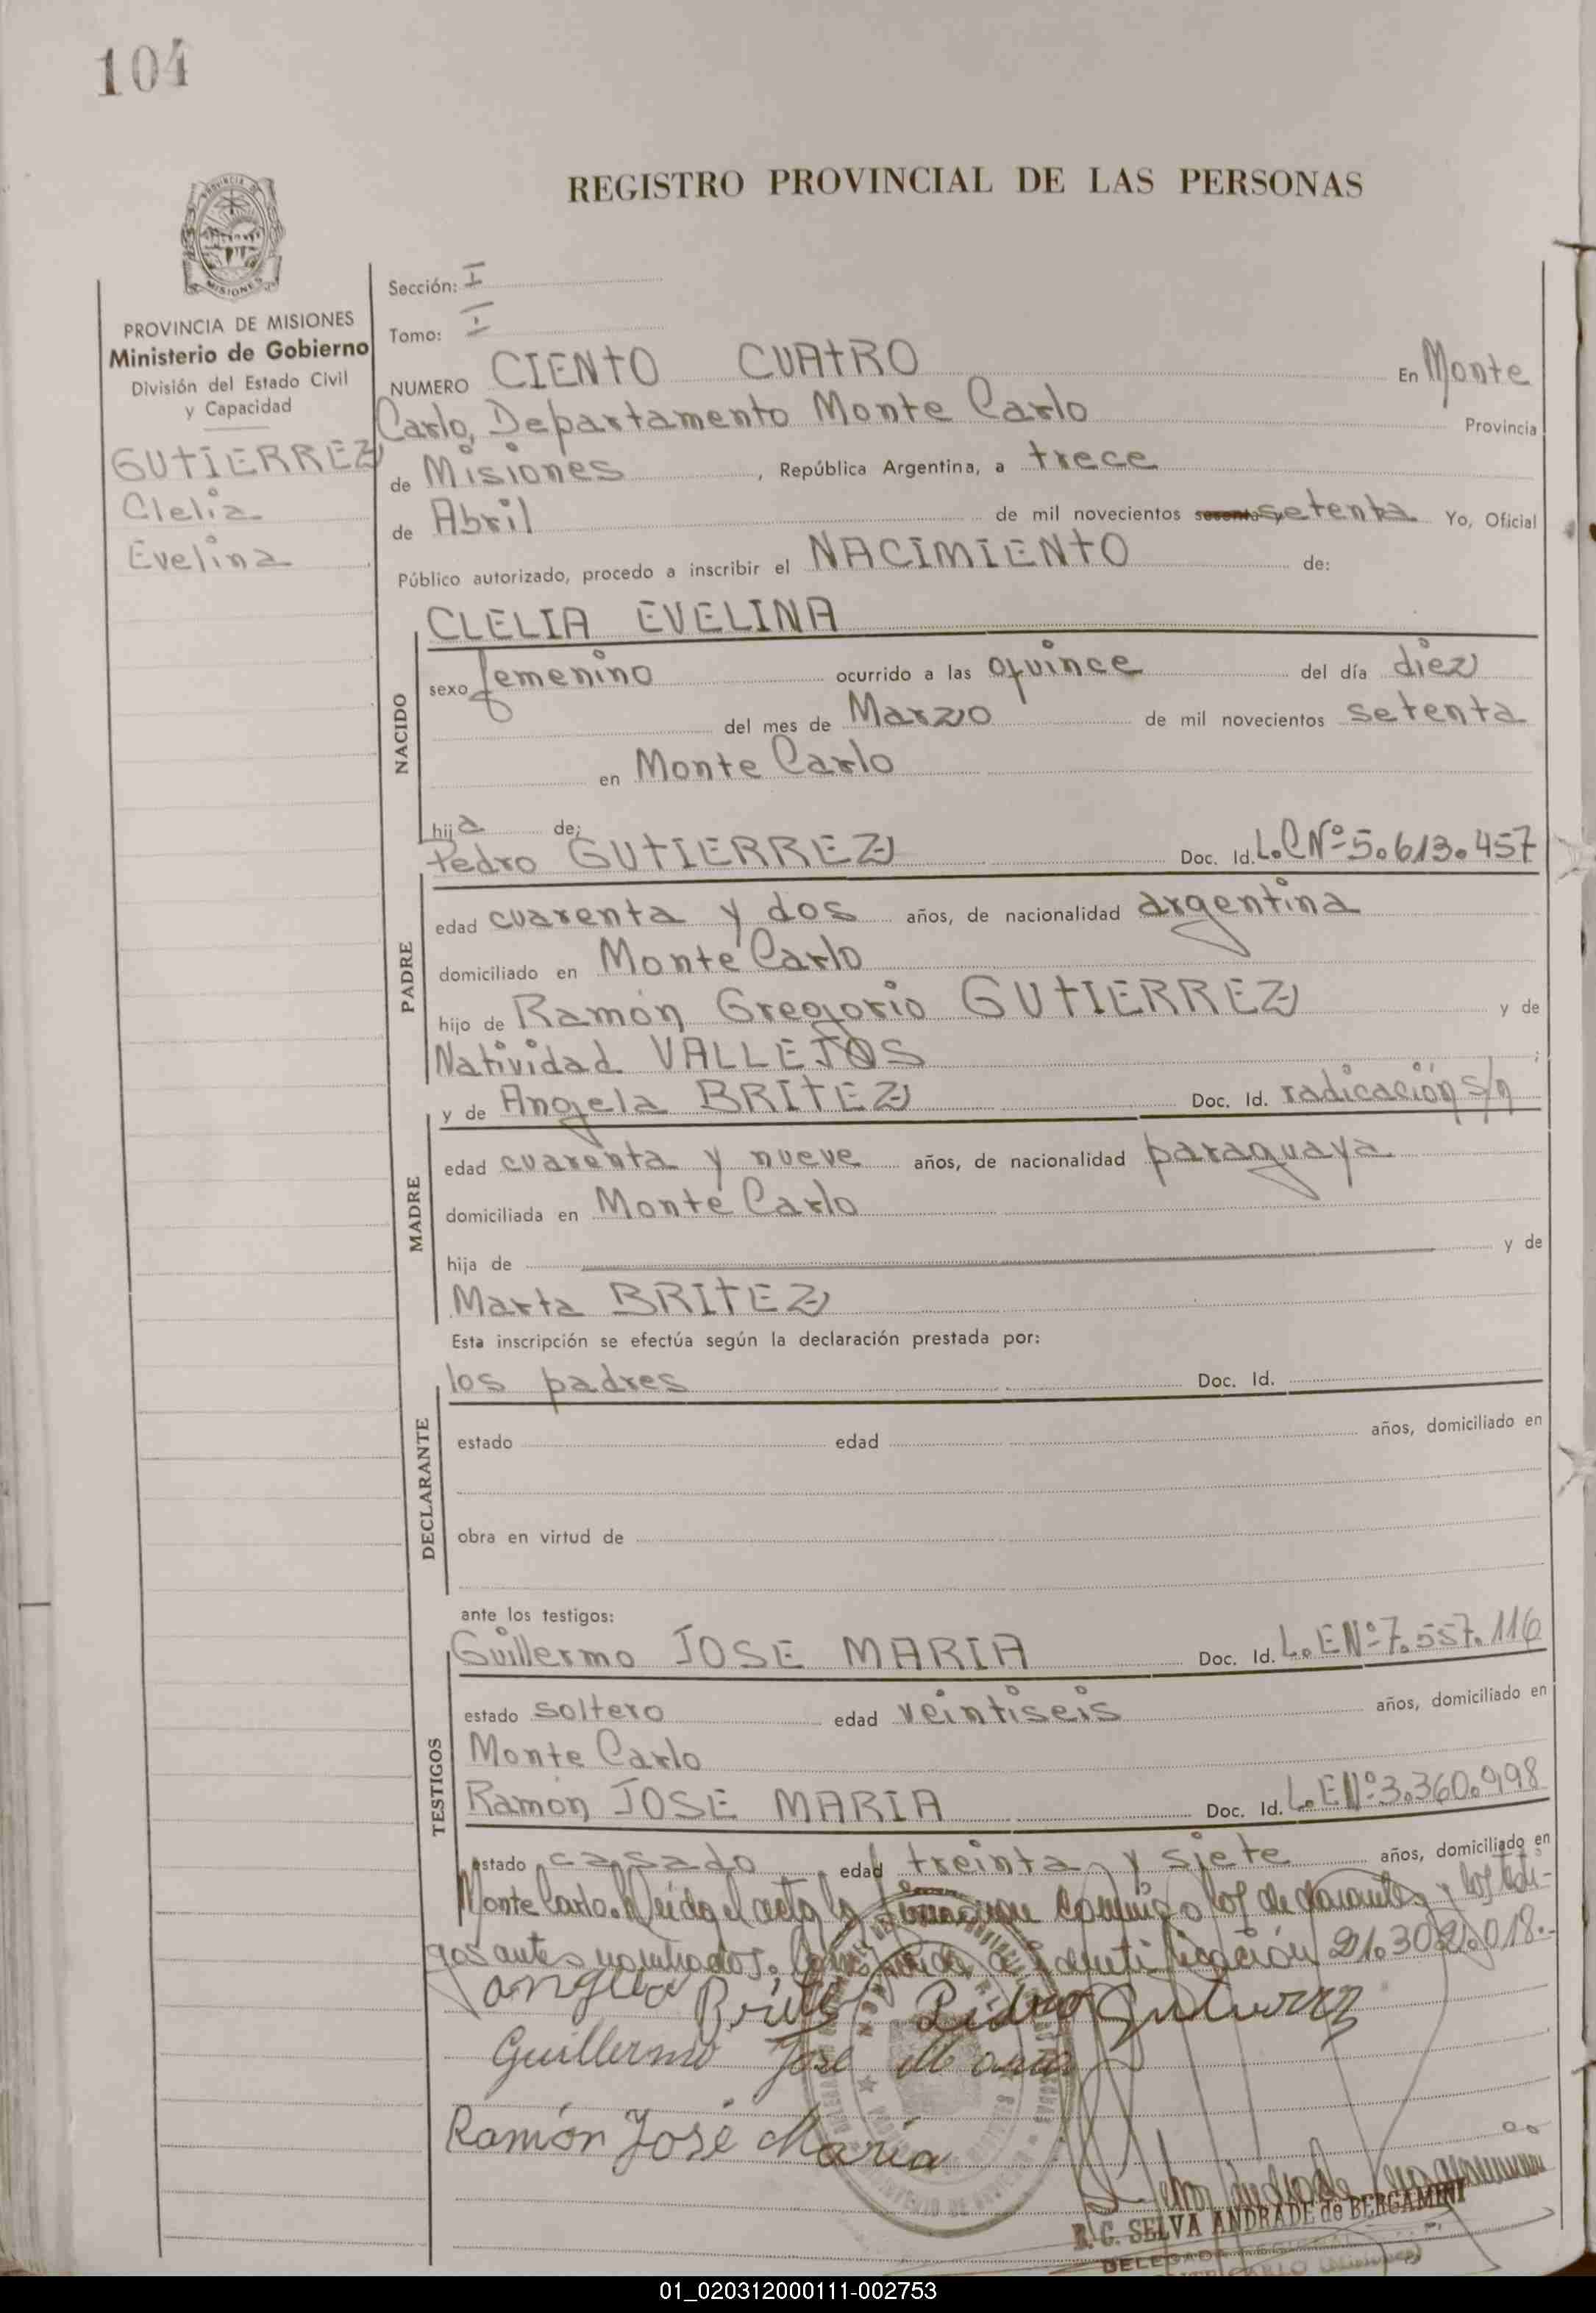 104
REGISTRO PROVINCIAL DE LAS PERSONAS
PROVINCIA DE MISIONES
Ministerio de Gobierno
División del Estado Civil
y Capacidad
GUTIERREZ
Clelia
Evelina
Sección: I
Tomo: I
NUMERO CIENTO CUATRO En Monte
Carlo, Departamento Monte Carlo Provincia
de Misiones, República Argentina, a trece
de Abril de mil novecientos setenta Yo, Oficial
Público autorizado, procedo a inscribir el NACIMIENTO de:
CLELIA EVELINA
NACIDO
sexo femenino ocurrido a las quince del día diez
del mes de Marzo de mil novecientos setenta
en Monte Carlo
hija de:
Pedro GUTIERREZ Doc. Id. L.C Nº 5.613.457
PADRE
edad cuarenta y dos años, de nacionalidad argentina
domiciliado en Monte Carlo
hijo de Ramón Gregorio GUTIERREZ y de
Natividad VALLEJOS ;
y de Angela BRITEZ Doc. Id. radicación s/n
MADRE
edad cuarenta y nueve años, de nacionalidad paraguaya
domiciliada en Monte Carlo
hija de y de
Marta BRITEZ
Esta inscripción se efectúa según la declaración prestada por:
los padres Doc. Id.
DECLARANTE
estado edad años, domiciliado en
obra en virtud de
ante los testigos:
Guillermo JOSE MARIA Doc. Id. L.E Nº 7.557.116
TESTIGOS
estado soltero edad veintiseis años, domiciliado en
Monte Carlo
Ramón JOSE MARIA Doc. Id. L.E Nº 3.360.998
estado casado edad treinta y siete años, domiciliado en
Monte Carlo. Leída el acta la conmigo los declarantes y los testi-
gos antes nombrados. de identificación 21.302.018.-
Angela Britez Pedro Gutierrez
Guillermo José Maria
Ramón José María
R. C. SELVA ANDRADE de BERGAMINI
DELEGADA
01_020312000111-002753